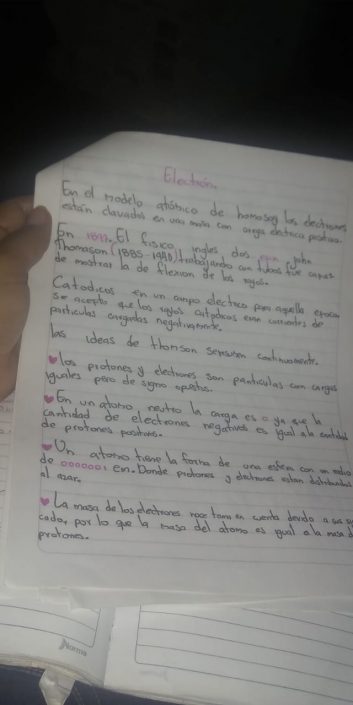 Electrón.
En el modelo atómico de homosos los electrones
están clavados en una masa con carga electrica positiva.
En 1897. El fisico, ingles dos john
Thomason (1885-1940) trabajando con tubos fue capaz
de mostrar la de flexion de los rayos.
Catodicos en un campo electrico para aquella epoca
se acepto que los rayos catodicos eran corrientes de
particulas cargadas negativamente.
las ideas de thonson continuamente.
los protones y electrones son particulas con cargas
iguales pero de signo opuestos.
En un atomo, neutro la carga es 0 ya que la
cantidad de electrones negativos es igual a la cantidad
de protones positivos.
Un atomo tiene la forma de una esfera con un radio
de 0000001 en. Donde protones y electrones estan distribuidos
al azar.
La masa de los electrones toma en cuenta devido a su
por lo que la masa del atomo es igual a la masa d
protones.
Norma